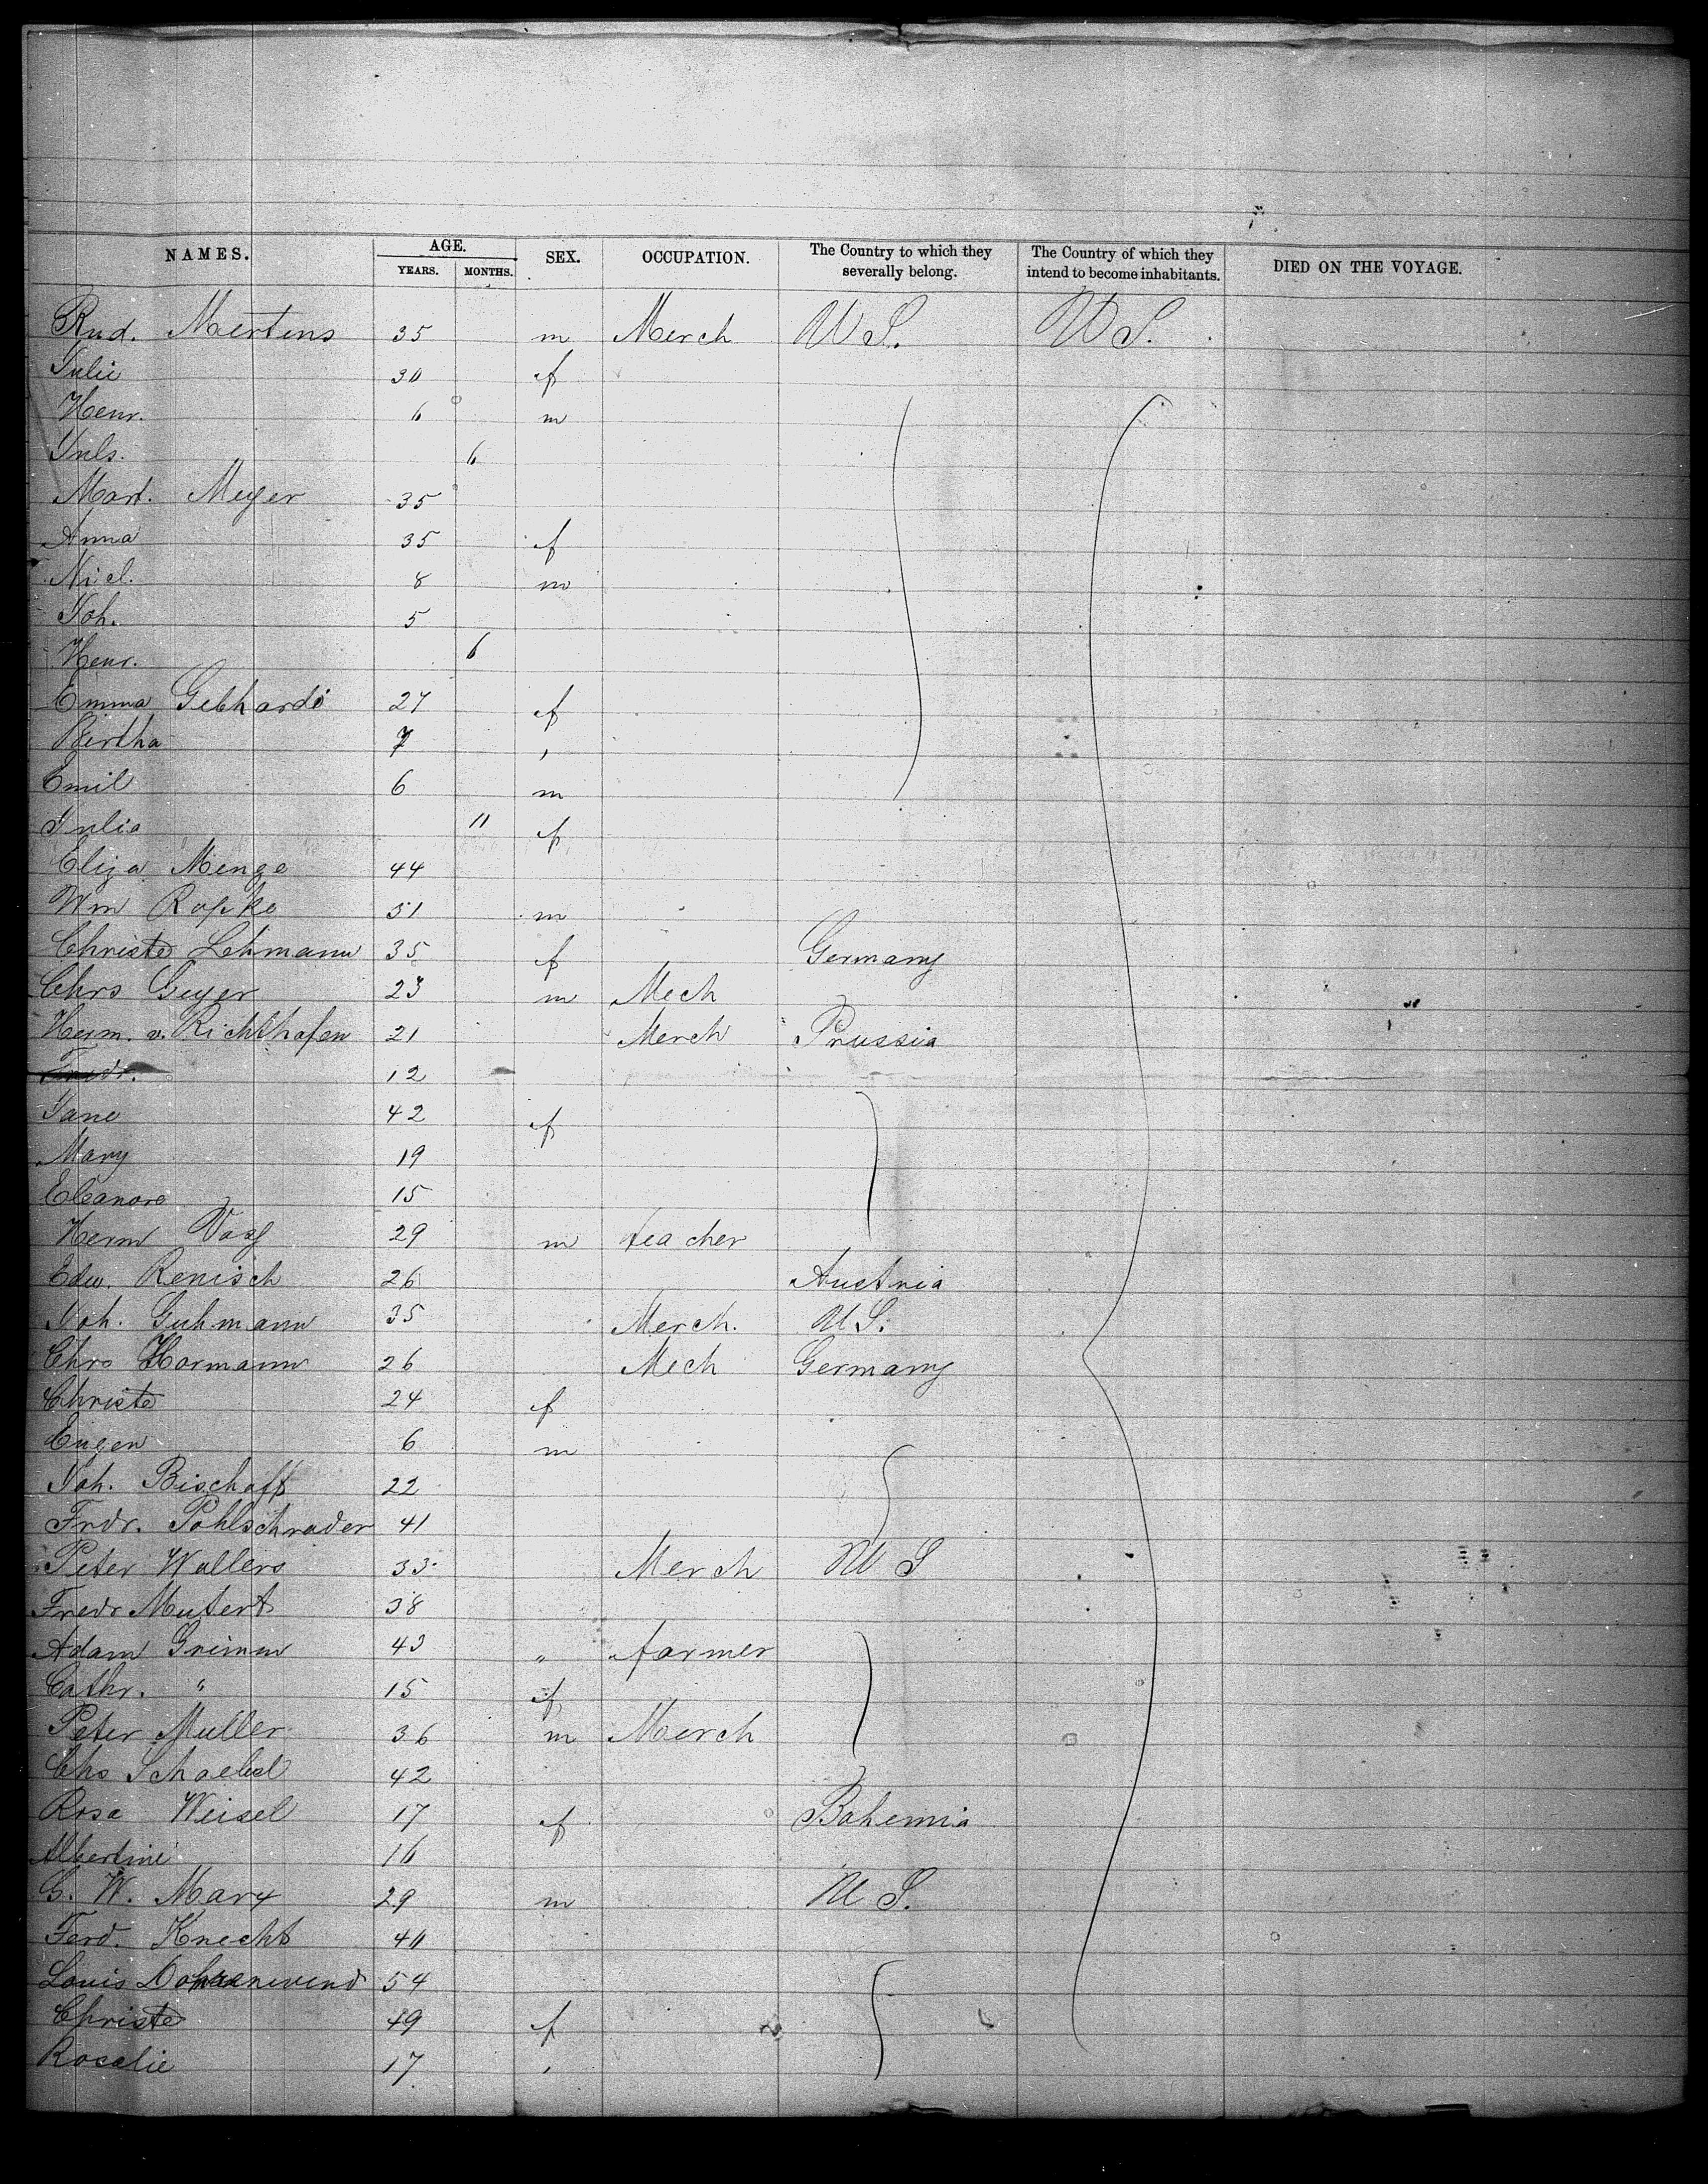 NAMES. AGE. YEARS. MONTHS. SEX. OCCUPATION. The Country to which they severally belong. The Country of which they intend to become inhabitants. DIED ON THE VOYAGE.
Rud. Mertens 35 m Merch U S. U S.
Julie 30 f
Henr. 6 m
Juls. 6
Mart. Meyer 35
Anna 35 f
Nicl. 8 m
Joh. 5
Henr. 6
Emma Gebhardi 27 f
Bertha 7 ,
Emil 6 m
Julia 11 f
Eliza Menge 44
Wm Ropke 51 m
Christe Lehmann 35 f Germany
Chrs Geyer 23 m Mech
Herm. v. Richthofen 21 Merch Prussia
Fredr. 12
Jane 42 f
Mary 19
Eleanore 15
Herm 29 m teacher
Edw. Renisch 26 Austria
Joh. Guhmann 35 Merch. U S.
Chrs Hormann 26 Mech Germany
Christe 24 f
Eugen 6 m
Joh. Bischoff 22
Frdr. Pohlschrader 41
Peter Wallers 33 Merch U S
Fredr Mutert 38
Adam Grimm 43 " farmer
Cathr. " 15 f
Peter Muller 36 m Merch
Chs Schaebel 42
Rosa Weisel 17 f Bohemia
Albertine 16
G. W. Marx 29 m U S.
Ferd. Knecht 40
Louis 54
Christe 49 f
Rosalie 17 ,